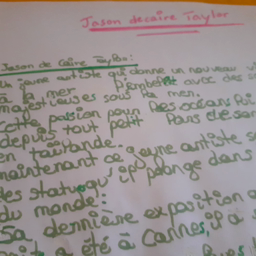 Jason decaire Taylor
Jason de Caire Taylor:
Un jeune artiste qui donne un nouveau vi
à la mer avec des s
majestieuses sous la mer.
Cette passion pour des océans lui
depuis tout petit Dans désor
en
maintenant ce jeune artiste s
des statuequ'il plonge dans
du monde:
Sa dernière exposition a
été à Cannes, il a s